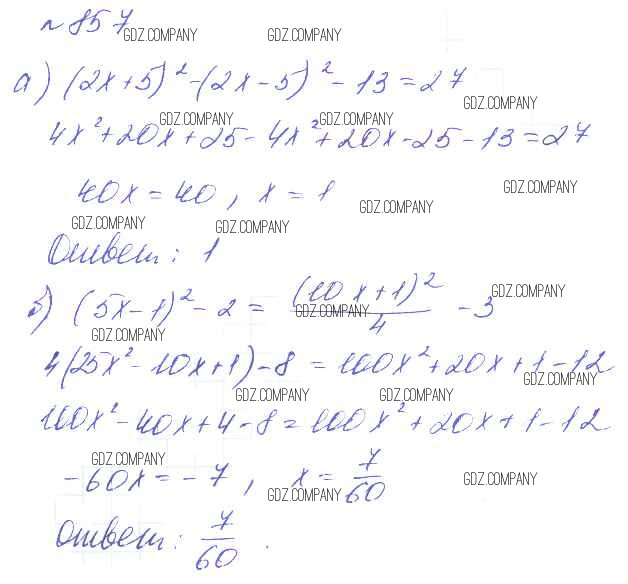 № 857
GDZ.COMPANY GDZ.COMPANY
а) (2x+5)² - (2x-5)² - 13 = 27
GDZ.COMPANY
GDZ.COMPANY GDZ.COMPANY
4x² + 20x + 25 - 4x² + 20x - 25 - 13 = 27
GDZ.COMPANY
40x = 40, x = 1
GDZ.COMPANY
GDZ.COMPANY GDZ.COMPANY
Ответ: 1
б) (5x-1)² - 2 = (10x+1)²/4 - 3
GDZ.COMPANY
GDZ.COMPANY
GDZ.COMPANY
4(25x² - 10x + 1) - 8 = 100x² + 20x + 1 - 12
GDZ.COMPANY
GDZ.COMPANY GDZ.COMPANY
100x² - 40x + 4 - 8 = 100x² + 20x + 1 - 12
GDZ.COMPANY
-60x = -7, x = 7/60
GDZ.COMPANY GDZ.COMPANY
Ответ: 7/60.